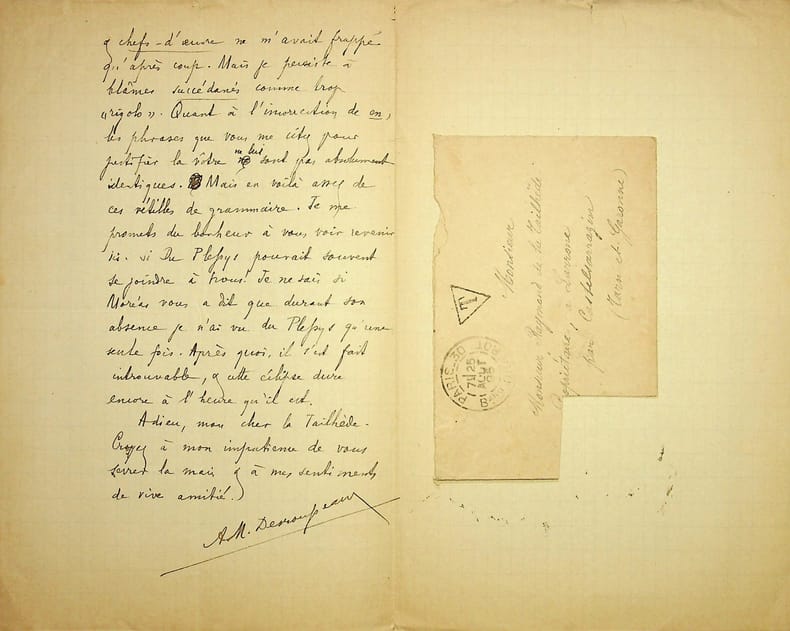 & chefs-d'œuvre ne m'avait frappé
qu'après coup. Mais je persiste à
blâmer succédanés comme trop
"rigolo". Quant à l'incorrection de en,
les phrases que vous me citez pour
justifier la vôtre sont pas absolument
identiques. Mais en voilà assez de
ces vétilles de grammaire. Je me
promets du bonheur à vous voir revenir
ici. Si Du Plessys pouvait souvent
se joindre à nous! Je ne sais si
Moréas vous a dit que durant son
absence je n'ai vu du Plessys qu'une
seule fois. Après quoi, il s'est fait
introuvable, & cette éclipse dure
encore à l'heure qu'il est.
Adieu, mon cher la Tailhède.
Croyez à mon impatience de vous
serrer la main & à mes sentiments
de vive amitié.
A. M. Desrousseaux
Monsieur
Monsieur Raymond de la Tailhède
Propriétaire, à
par Castelsarrazin
(Tarn et Garonne)
T
PARIS-30
7 25
AOUT
95